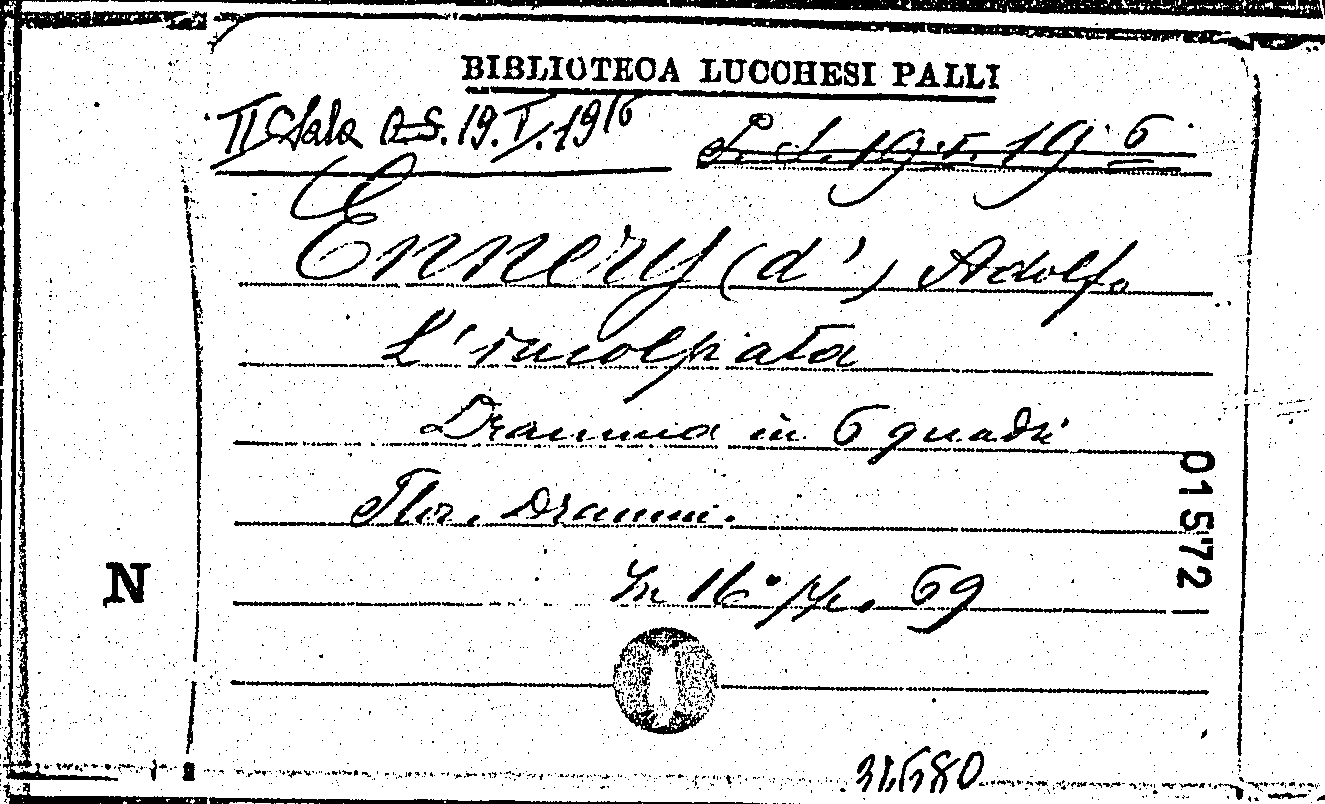 BIBLIOTECA LUCCHESI PALLI
II Sala A.S. 19.I.19¹⁶ S. S. 19.I.19.6
Ennery (d') Adolfo
L'incolpata
Dramma in 6 quadri
Flor. Dramm.
In 16° pp. 69
N
01572